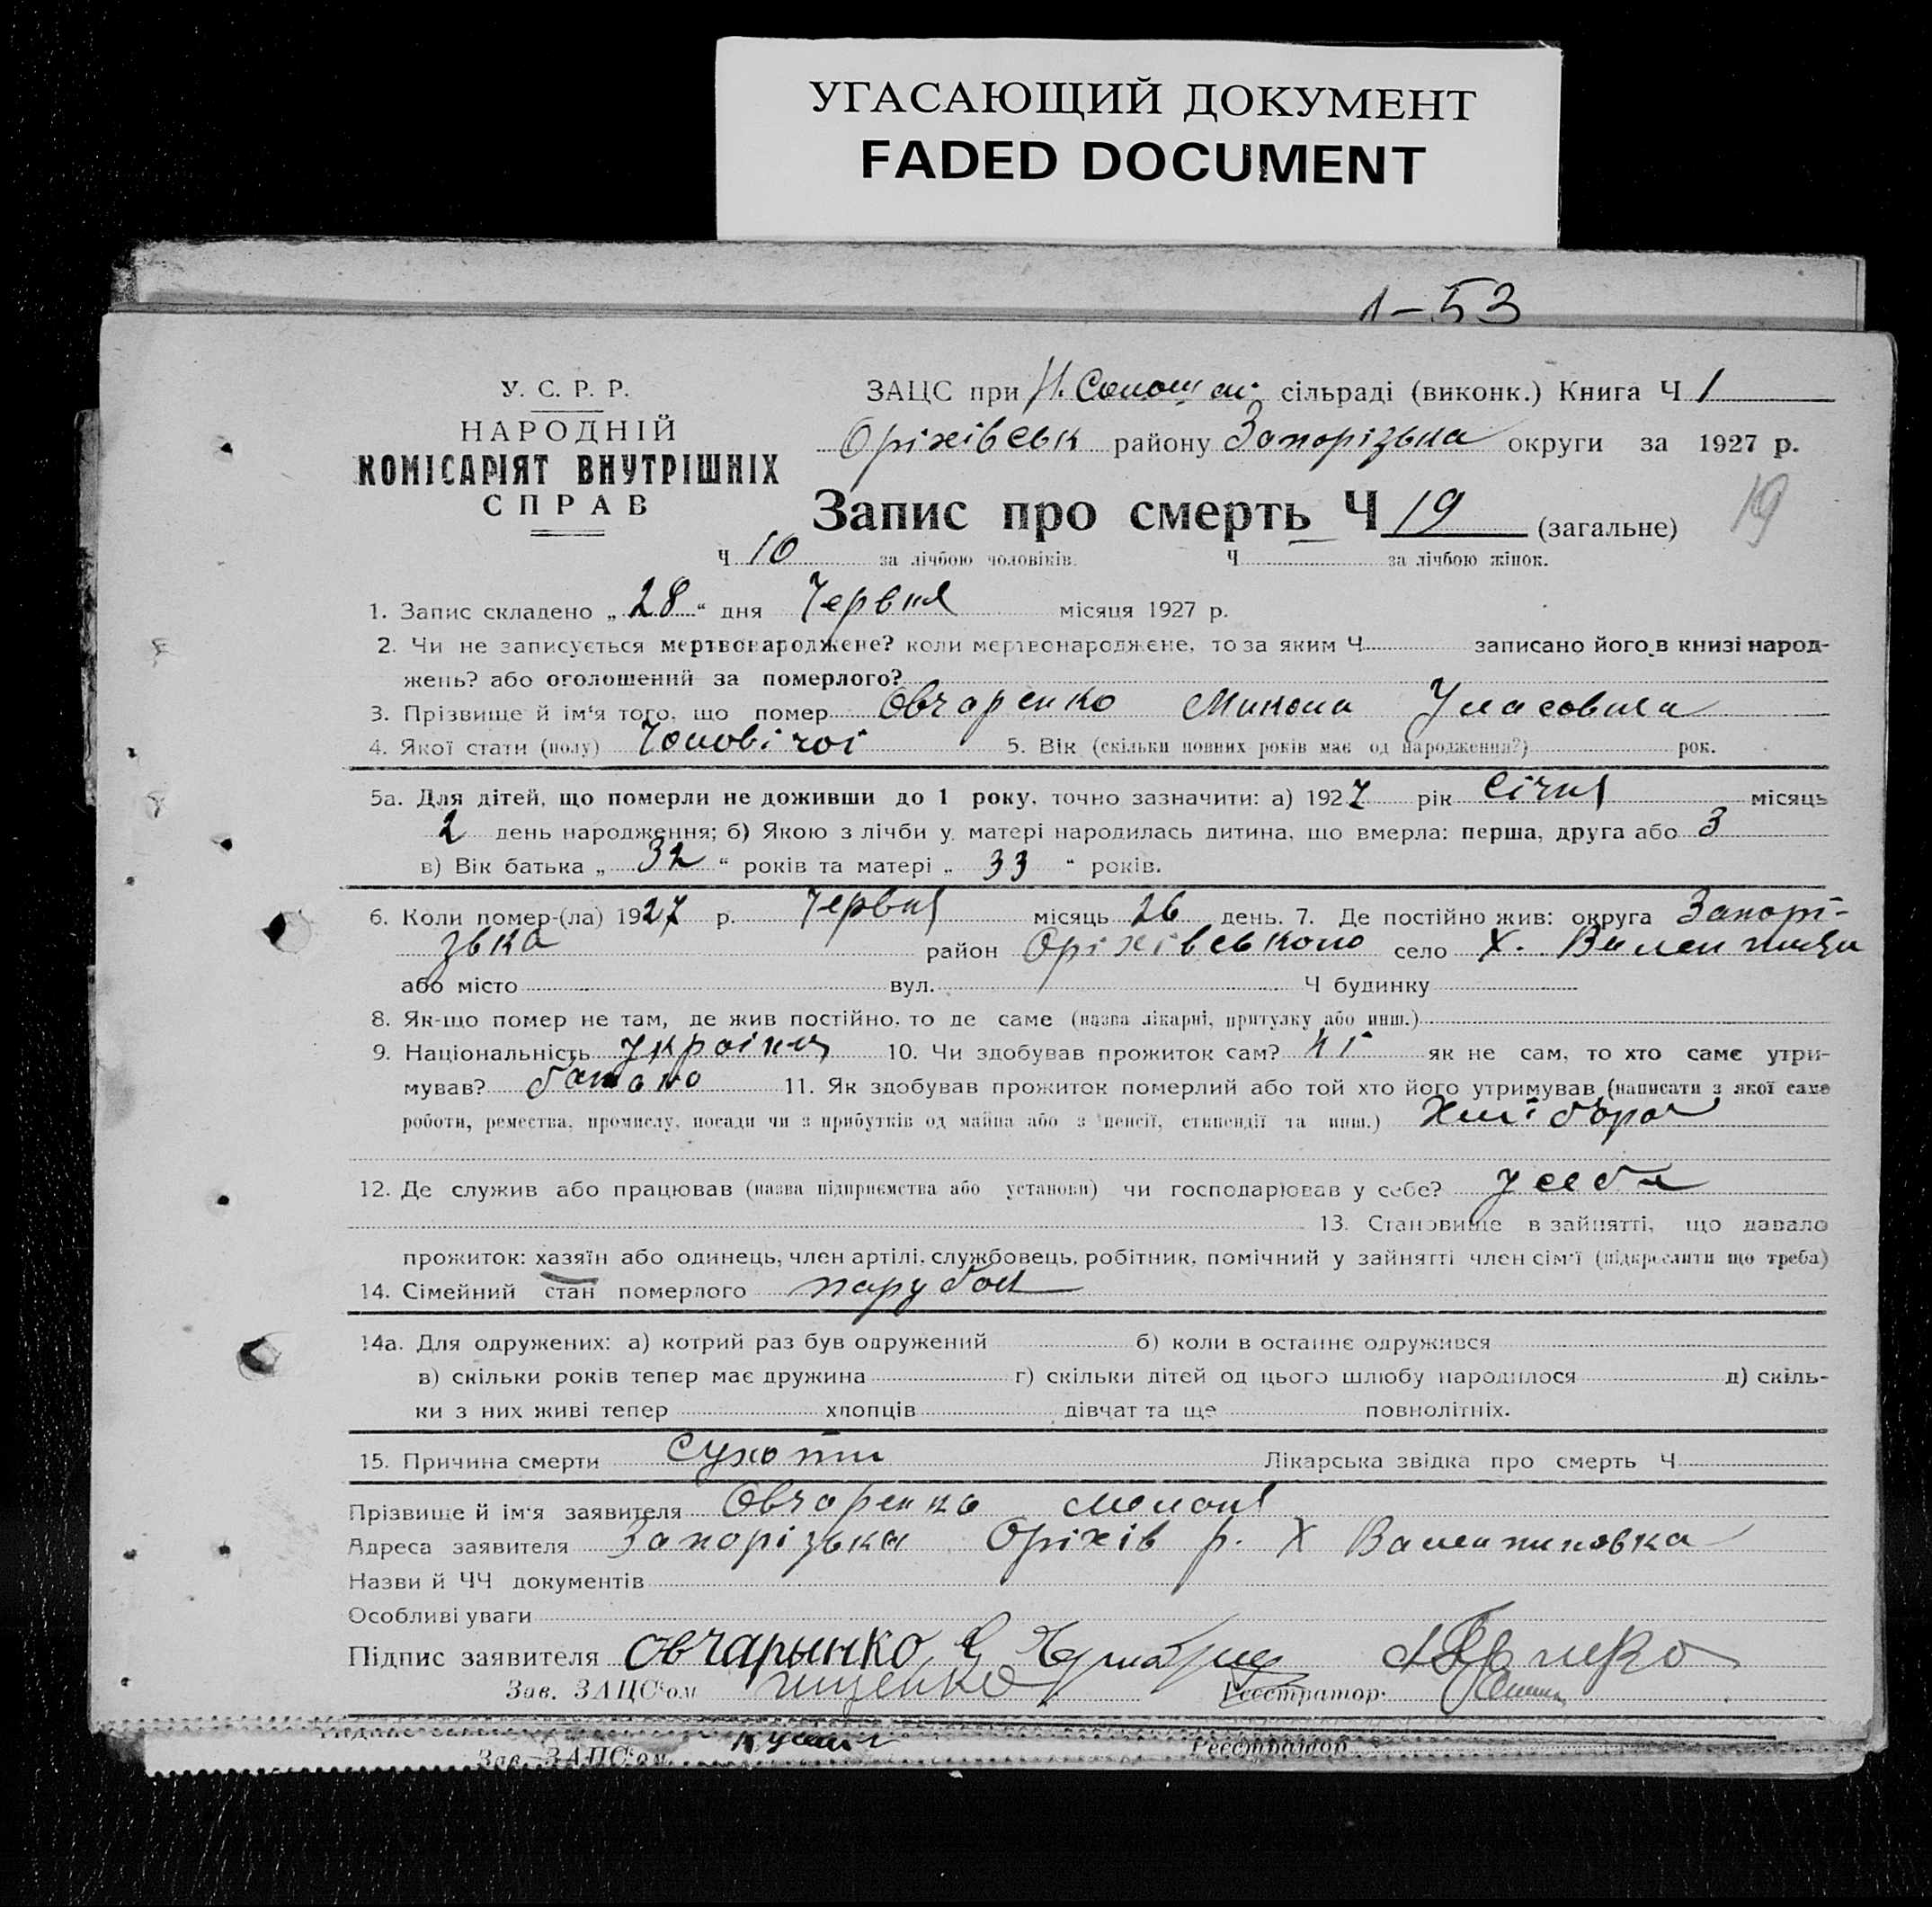 УГАСАЮЩИЙ ДОКУМЕНТ
FADED DOCUMENT
1-53
У. С. Р. Р.
НАРОДНІЙ
КОМІСАРІЯТ ВНУТРІШНІХ
СПРАВ
ЗАЦС при сільраді (виконк.) Книга Ч 1
Оріхівськ району Запорізька округи за 1927 р.
Запис про смерть Ч 19 (загальне) 19
Ч 10 за лічбою чоловіків. Ч за лічбою жінок.
1. Запис складено „ 28 “ дня Червня місяця 1927 р.
2. Чи не записується мертвонароджене? коли мертвонароджене, то за яким Ч записано його в книзі народ-
жень? або оголошений за померлого?
3. Прізвище й ім'я того, що помер Овчаренко Микола Уласовича
4. Якої стати (полу) Чоловічої 5. Вік (скільки повних років має од народження?) рок.
5а. Для дітей, що померли не доживши до 1 року, точно зазначити: а) 1927 рік Січня місяць
2 день народження; б) Якою з лічби у матері народилась дитина, що вмерла: перша, друга або 3
в) Вік батька „ 32 “ років та матері „ 33 “ років.
6. Коли помер-(ла) 1927 р. Червня місяць 26 день. 7. Де постійно жив: округа Запорі-
зька район Оріхівського село Х.
або місто вул. Ч будинку
8. Як-що помер не там, де жив постійно, то де саме (назва лікарні, притулку або инш.)
9. Національність 10. Чи здобував прожиток сам? ні як не сам, то хто саме утри-
мував? батько 11. Як здобував прожиток померлий або той хто його утримував (написати з якої саме
роботи, ремества, промислу, посади чи з прибутків од майна або з пенсії, стипендії та инш.) Хлібороб
12. Де служив або працював (назва підприємства або установи) чи господарював у себе? У себе
13. Становище в зайнятті, що давало
прожиток: хазяїн або одинець, член артілі, службовець, робітник, помічний у зайнятті член сім'ї (підкреслити що треба)
14. Сімейний стан померлого парубок
14а. Для одружених: а) котрий раз був одружений б) коли в останнє одружився
в) скільки років тепер має дружина г) скільки дітей од цього шлюбу народилося д) скіль-
ки з них живі тепер хлопців дівчат та ще повнолітніх.
15. Причина смерти Сухоти Лікарська звідка про смерть Ч
Прізвище й ім'я заявителя Овчаренко
Адреса заявителя Запорізька Оріхів р. Х Валентиновка
Назви й ЧЧ документів
Особливі уваги
Підпис заявителя овчарынко
Зав. ЗАЦС'ом Реєстратор
Підпис
Зав. ЗАЦС'ом Реєстратор